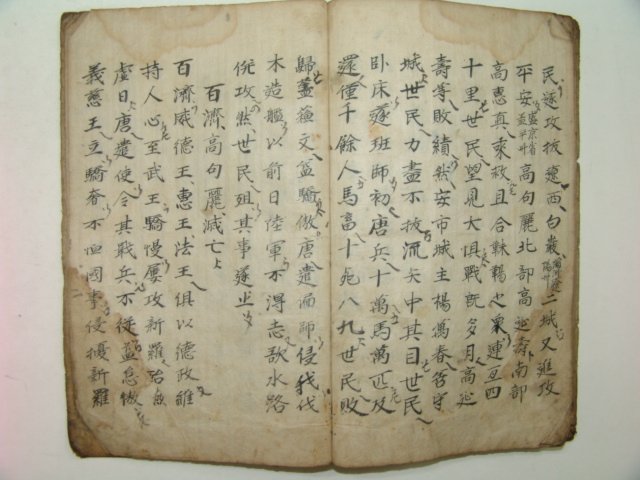 民逐攻拔遼西句叢二城又進攻
平安盛京省高句麗北部高延壽南部
高惠真來救且合靺鞨之衆連亘四
十里世民望見大惧戰旣多月高延
壽等敗績然安市城主楊萬春苦守
城世民力盡不拔流矢中其目世民
卧床遂班師初唐兵十萬馬萬匹及
還僅千餘人馬畜十死八九世民敗
歸蓋蘇文益驕傲唐遣面師侵我伐
木造艦以前日陸軍不得志故水路
侵攻然世民殂其事遂止
百濟高句麗滅亡
百濟威德王惠王法王俱以德政維
持人心至武王驕慢屢攻新羅殆無
虛日唐遣使令其戢兵不從益怠傲
義慈王立驕奢不恤國事侵擾新羅